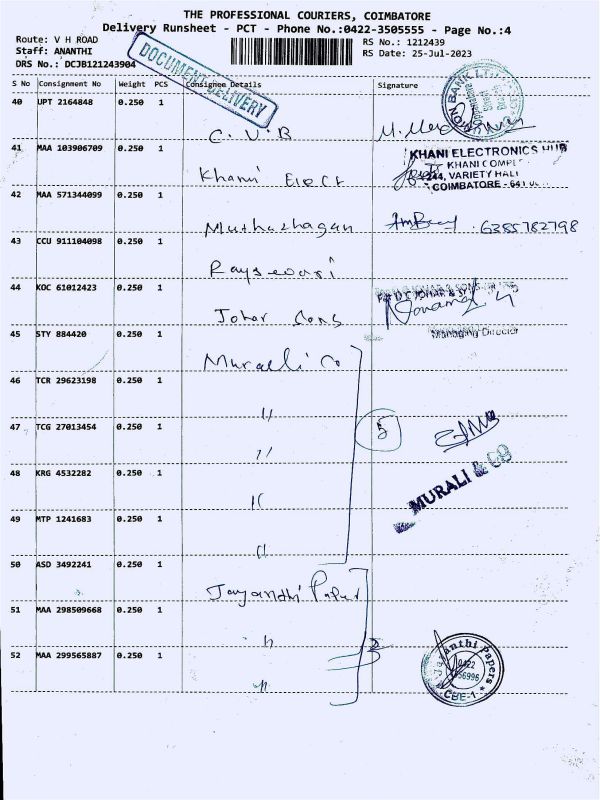 THE PROFESSIONAL COURIERS, COIMBATORE
Delivery Runsheet - PCT - Phone No.:0422-3505555 - Page No.:4
Route: V H ROAD
Staff: ANANTHI
DRS No.: DCJB121243904
RS No.: 1212439
RS Date: 25-Jul-2023
DOCUMENT DELIVERY
S No Consignment No Weight PCS Consignee Details Signature
40 UPT 2164848 0.250 1
C.V.B
41 MAA 103906709 0.250 1
Khami Elect
KHANI ELECTRONICS HUB
244, VARIETY HALL
COIMBATORE
42 MAA 571344099 0.250 1
Muthazhagan 6385782798
43 CCU 911104098 0.250 1
44 KOC 61012423 0.250 1
Johar Sons
Managing Director
45 STY 884420 0.250 1
Muralli Co
46 TCR 29623198 0.250 1
"
47 TCG 27013454 0.250 1
" 5
48 KRG 4532282 0.250 1
"
MURALI & CO
49 MTP 1241683 0.250 1
"
50 ASD 3492241 0.250 1
Jayandhi Paper
51 MAA 298509668 0.250 1
"
52 MAA 299565887 0.250 1
"
Papers
0422
CBE-1